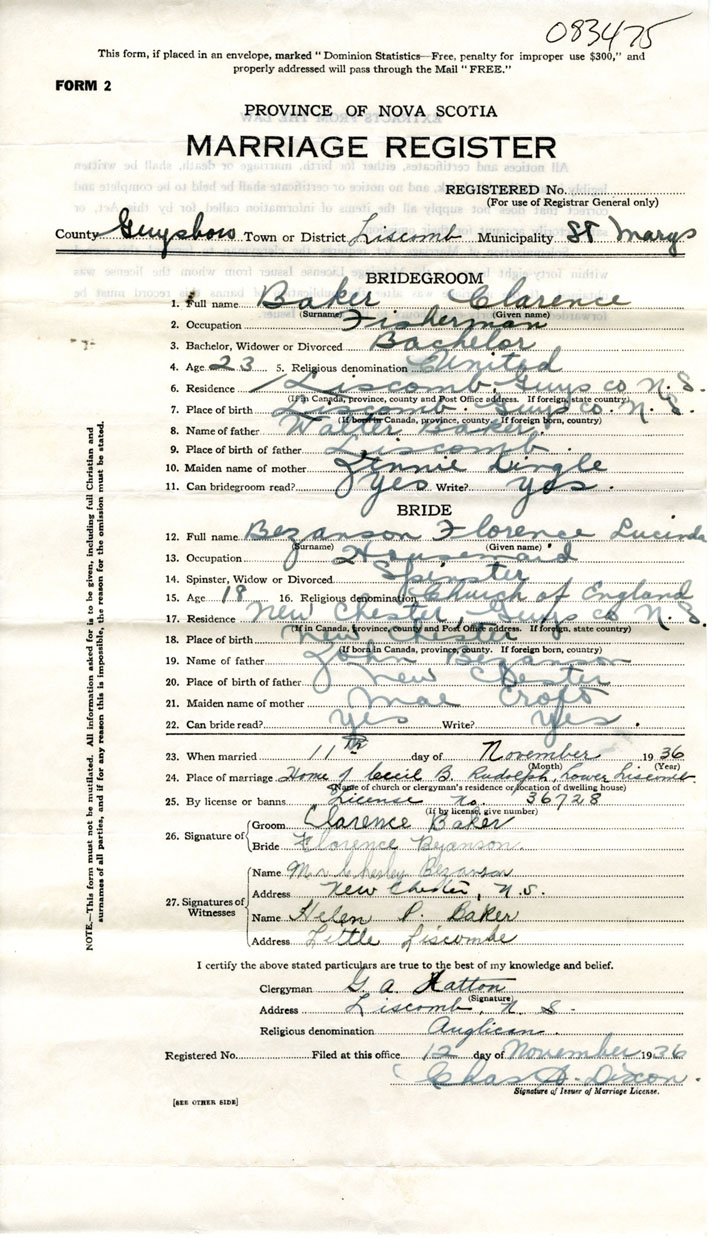 083475
This form, if placed in an envelope, marked "Dominion Statistics—Free, penalty for improper use $300," and
properly addressed will pass through the Mail "FREE."
FORM 2
PROVINCE OF NOVA SCOTIA
MARRIAGE REGISTER
REGISTERED No.
(For use of Registrar General only)
County Guysboro Town or District Liscomb Municipality St Marys
BRIDEGROOM
1. Full name Baker Clarence
(Surname) (Given name)
2. Occupation Fisherman
3. Bachelor, Widower or Divorced Bachelor
4. Age 23 5. Religious denomination United
6. Residence Liscomb. Guys co N. S.
(If in Canada, province, county and Post Office address. If foreign, state country)
7. Place of birth Liscomb. Guys co. N. S.
(If born in Canada, province, county. If foreign born, country)
8. Name of father Walter Baker
9. Place of birth of father Liscomb
10. Maiden name of mother Jennie Lingle
11. Can bridegroom read? yes Write? yes.
BRIDE
12. Full name Bezanson Florence Lucinda
(Surname) (Given name)
13. Occupation Housemaid
14. Spinster, Widow or Divorced Spinster
15. Age 18 16. Religious denomination Church of England
17. Residence New Chester Guys co N. S.
(If in Canada, province, county and Post Office address. If foreign, state country)
18. Place of birth New Chester
(If born in Canada, province, county. If foreign born, country)
19. Name of father John Bezanson
20. Place of birth of father New Chester
21. Maiden name of mother Mae
22. Can bride read? yes Write? yes.
23. When married 11th day of November 1936
(Month) (Year)
24. Place of marriage Home of Cecil B. Rudolph, Lower Liscomb.
(Name of church or clergyman's residence or location of dwelling house)
25. By license or banns License no. 36728
(If by license, give number)
26. Signature of Groom Clarence Baker
Bride Florence Bezanson.
27. Signatures of Witnesses
Name Mrs Chesley Bezanson
Address New Chester, N.S.
Name Helen P. Baker
Address Little Liscombe
I certify the above stated particulars are true to the best of my knowledge and belief.
Clergyman G. A. Hatton
(Signature)
Address Liscomb, N. S.
Religious denomination Anglican.
Registered No. Filed at this office 12 day of November 1936
Chas D. Dixon.
Signature of Issuer of Marriage License.
[SEE OTHER SIDE]
NOTE.—This form must not be mutilated. All information asked for is to be given, including full Christian and
surnames of all parties, and if for any reason this is impossible, the reason for the omission must be stated.